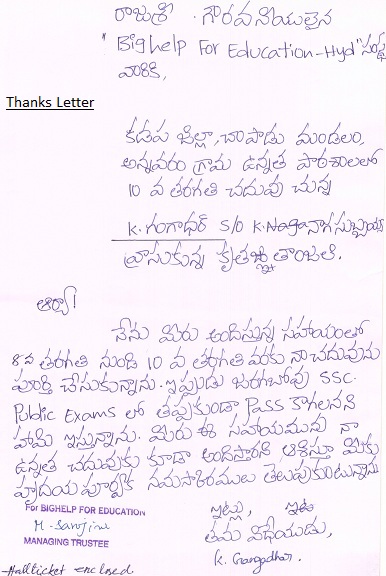 రాజుశ్రీ గౌరవనీయులైన
"Bighelp For Education-Hyd" సంస్థ
వారికి,
Thanks Letter
కడప జిల్లా, చాపాడు మండలం,
అన్నవరం గ్రామ ఉన్నత పాఠశాలలో
10 వ తరగతి చదువు చున్న
K. గంగాధర్ S/o K. నాగసుబ్బయ్య
వ్రాసుకున్న కృతజ్ఞతాంజలి.
ఆర్యా!
నేను మీరు అందిస్తున్న సహాయంతో
8వ తరగతి నుండి 10 వ తరగతి వరకు నా చదువును
పూర్తి చేసుకున్నాను. ఇప్పుడు జరగబోవు SSC.
Public Exams లో తప్పకుండా Pass కాగలనని
హామి ఇస్తున్నాను. మీరు ఈ సహాయమును నా
ఉన్నత చదువుకు కూడా అందిస్తారని ఆశిస్తూ మీకు
హృదయ పూర్వక నమస్కారములు తెలుపుకుంటున్నాను
ఇట్లు,
For BIGHELP FOR EDUCATION
తమ విధేయుడు,
M. Sarojini
MANAGING TRUSTEE
K. Gangadhar.
-Hallticket enclosed